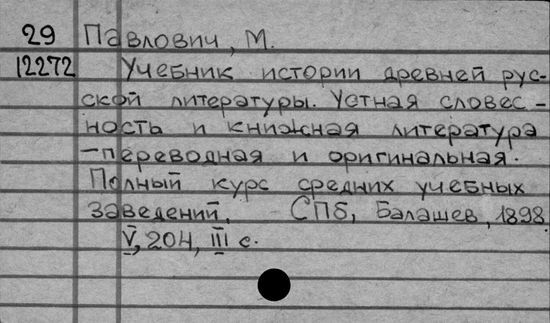 29 Павлович, М.
12272 Учебник истории древней рус-
ской литературы. Устная словес-
ность и книжная литература
-переводная и оригинальная.
Полный курс средних учебных
заведений. СПб, Балашев, 1898.
V, 204, III с.